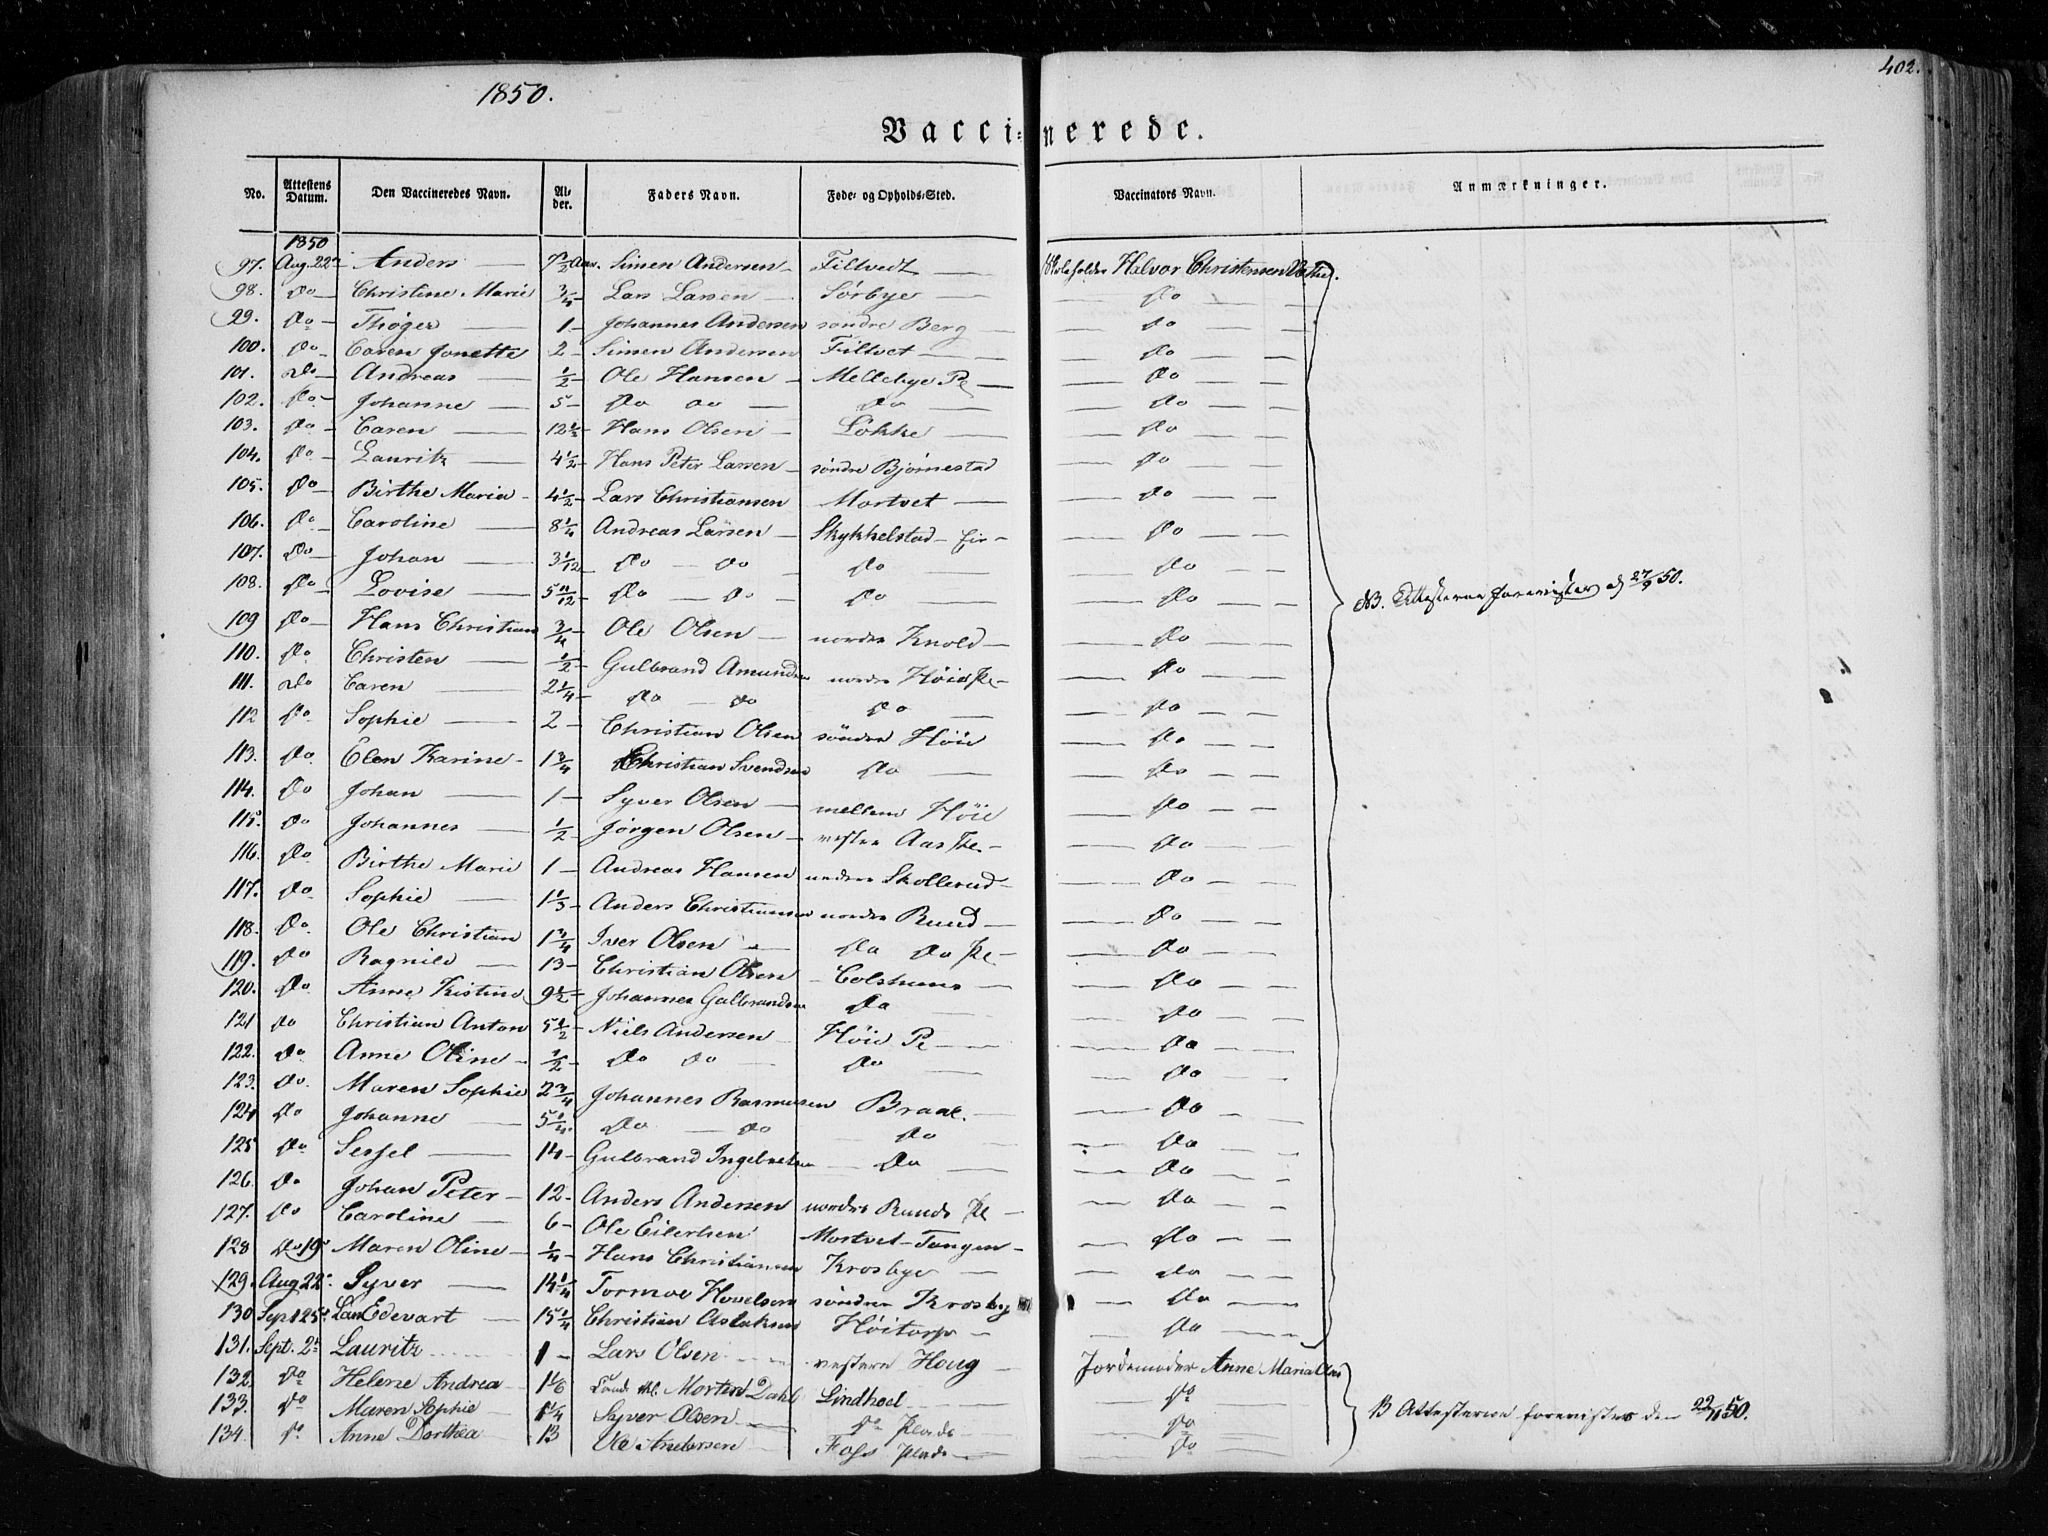 1850.
402.
Vacci=nerede.
No. Attestens Datum. Den Vaccineredes Navn. Al-der. Faders Navn. Føde- og Opholds-Sted. Vaccinators Navn. Anmærkninger.
1850
97. Aug. 22 Anders — 7½ Aar. Simen Andersen — Filtvedt — Skoleholder Halvor Christensen
98. Do — Christine Marie ¾ — Lars Larsen — Sørbye — Do
99. Do — Thøger — 1 — Johannes Andersen søndre Berg — Do
100. Do — Caren Jonette 2 — Simen Andersen Filtvet — Do
101. Do — Andreas — ½ — Ole Hansen — Mellebye Pl — Do
102. Do — Johanne — 5 — Do Do — Do — Do
103. Do — Caren — 12½ — Hans Olsen — Løkke — Do
104. Do — Lauritz — 4½ — Hans Peter Larsen — søndre Bjørnestad Do
105. Do — Birthe Maria — 4½ — Lars Christiansen Mortvet — Do
106. Do — Caroline — 8¼ Andreas Larsen — Skykkelstad — Eie — Do
107. Do — Johan — 3 1/12 Do — Do Do — Do
108. Do — Lovise — 5 11/12 Do — Do — Do — Do
109 Do — Hans Christian ¾ — Ole Olsen — nordre Knold — Do
110. Do Christen — ½ — Gulbrand Amundsen nordre Høie Pl — Do
111. Do Caren — 2¼ — Do — Do Do — Do
112 Do Sophie — 2 — Christian Olsen søndre Høie Do
113. Do Elen Karine — 1¾ Christian Svendsen Do — Do
114. Do Johan — 1 — Syver Olsen — mellem Høie Do
115. Do Johannes — ½ — Jørgen Olsen — vestre Aas Pl. — Do
116. Do Birthe Marie 1 — Andreas Hansen nedre Skollerud — Do
117. Do Sophie — 1⅓ — Anders Christiansen nordre Ruud — Do
118. Do Ole Christian 1¾ — Iver Olsen — Do Do Pl — Do
119. Do Ragnild — 13 — Christian Olsen — Colshuus — Do
120. Do Anne Kristine 9½ — Johannes Gulbrandsen Do — Do
121 Do Christian Anton 5½ — Niels Andersen Høie Pl — Do
122. Do Anne Oline — ½ — Do Do — Do — Do
123. Do. Maren Sophie 2¾ Johannes Rasmussen Braae. — Do
124 Do Johanne — 5¼ Do — Do Do — Do
125 Do Sessel — 14 — Gulbrand Ingebretsen — Do — Do
126. Do Johan Peter — 12 — Anders Andersen nordre Ruuds Pl — Do
127. Do Caroline — 6 — Ole Eilertsen Mortvet — Tangen — Do
128 Do 19 Maren Oline — ¼ — Hans Christiansen Krosbye — Do
129. Aug 22 Syver — 14¼ Tormoe Hovelsen søndre Krosby — Do
130 Sept 25 Lars Edevart — 15¼ Christian Aslaksen Høitorp — Do
131. Sept. 2 Lauritz 1 — Lars Olsen vestern Houg — Jordemoder Anne Maria
132. Do Helene Andrea 1⅙ Morten Dahl Lindhoel Do
133. Do Maren Sophie 1¼ Syver Olsen Do Plads Do
134. Do Anne Dorthea 13 Ole Andersen Foss Plads Do
NB. Attesterne forevistes d 27/9 50.
B Attesterne forevistes den 22/11 50.